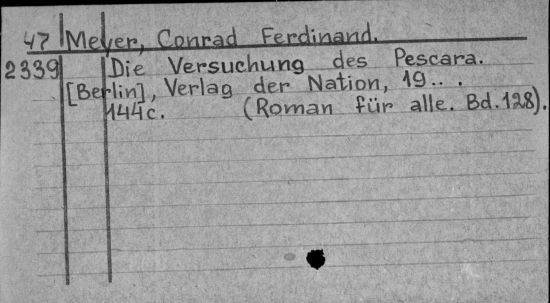 47 Meyer, Conrad Ferdinand.
2339 Die Versuchung des Pescara.
[Berlin], Verlag der Nation, 19.. .
144c. (Roman für alle. Bd. 128).